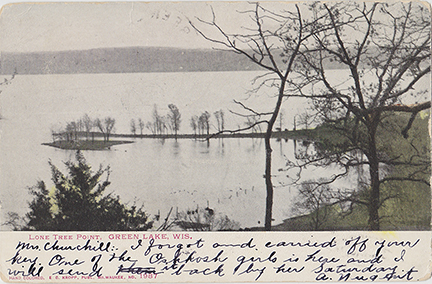 LONE TREE POINT, GREEN LAKE, WIS.
Mrs. Churchill:- I forgot and carried off your
key. One of the Oshkosh girls is here and I
HAND COLORED. E. C. KROPP, PUBL. MILWAUKEE, NO. 1987
will send it back by her Saturday
A. Nugent